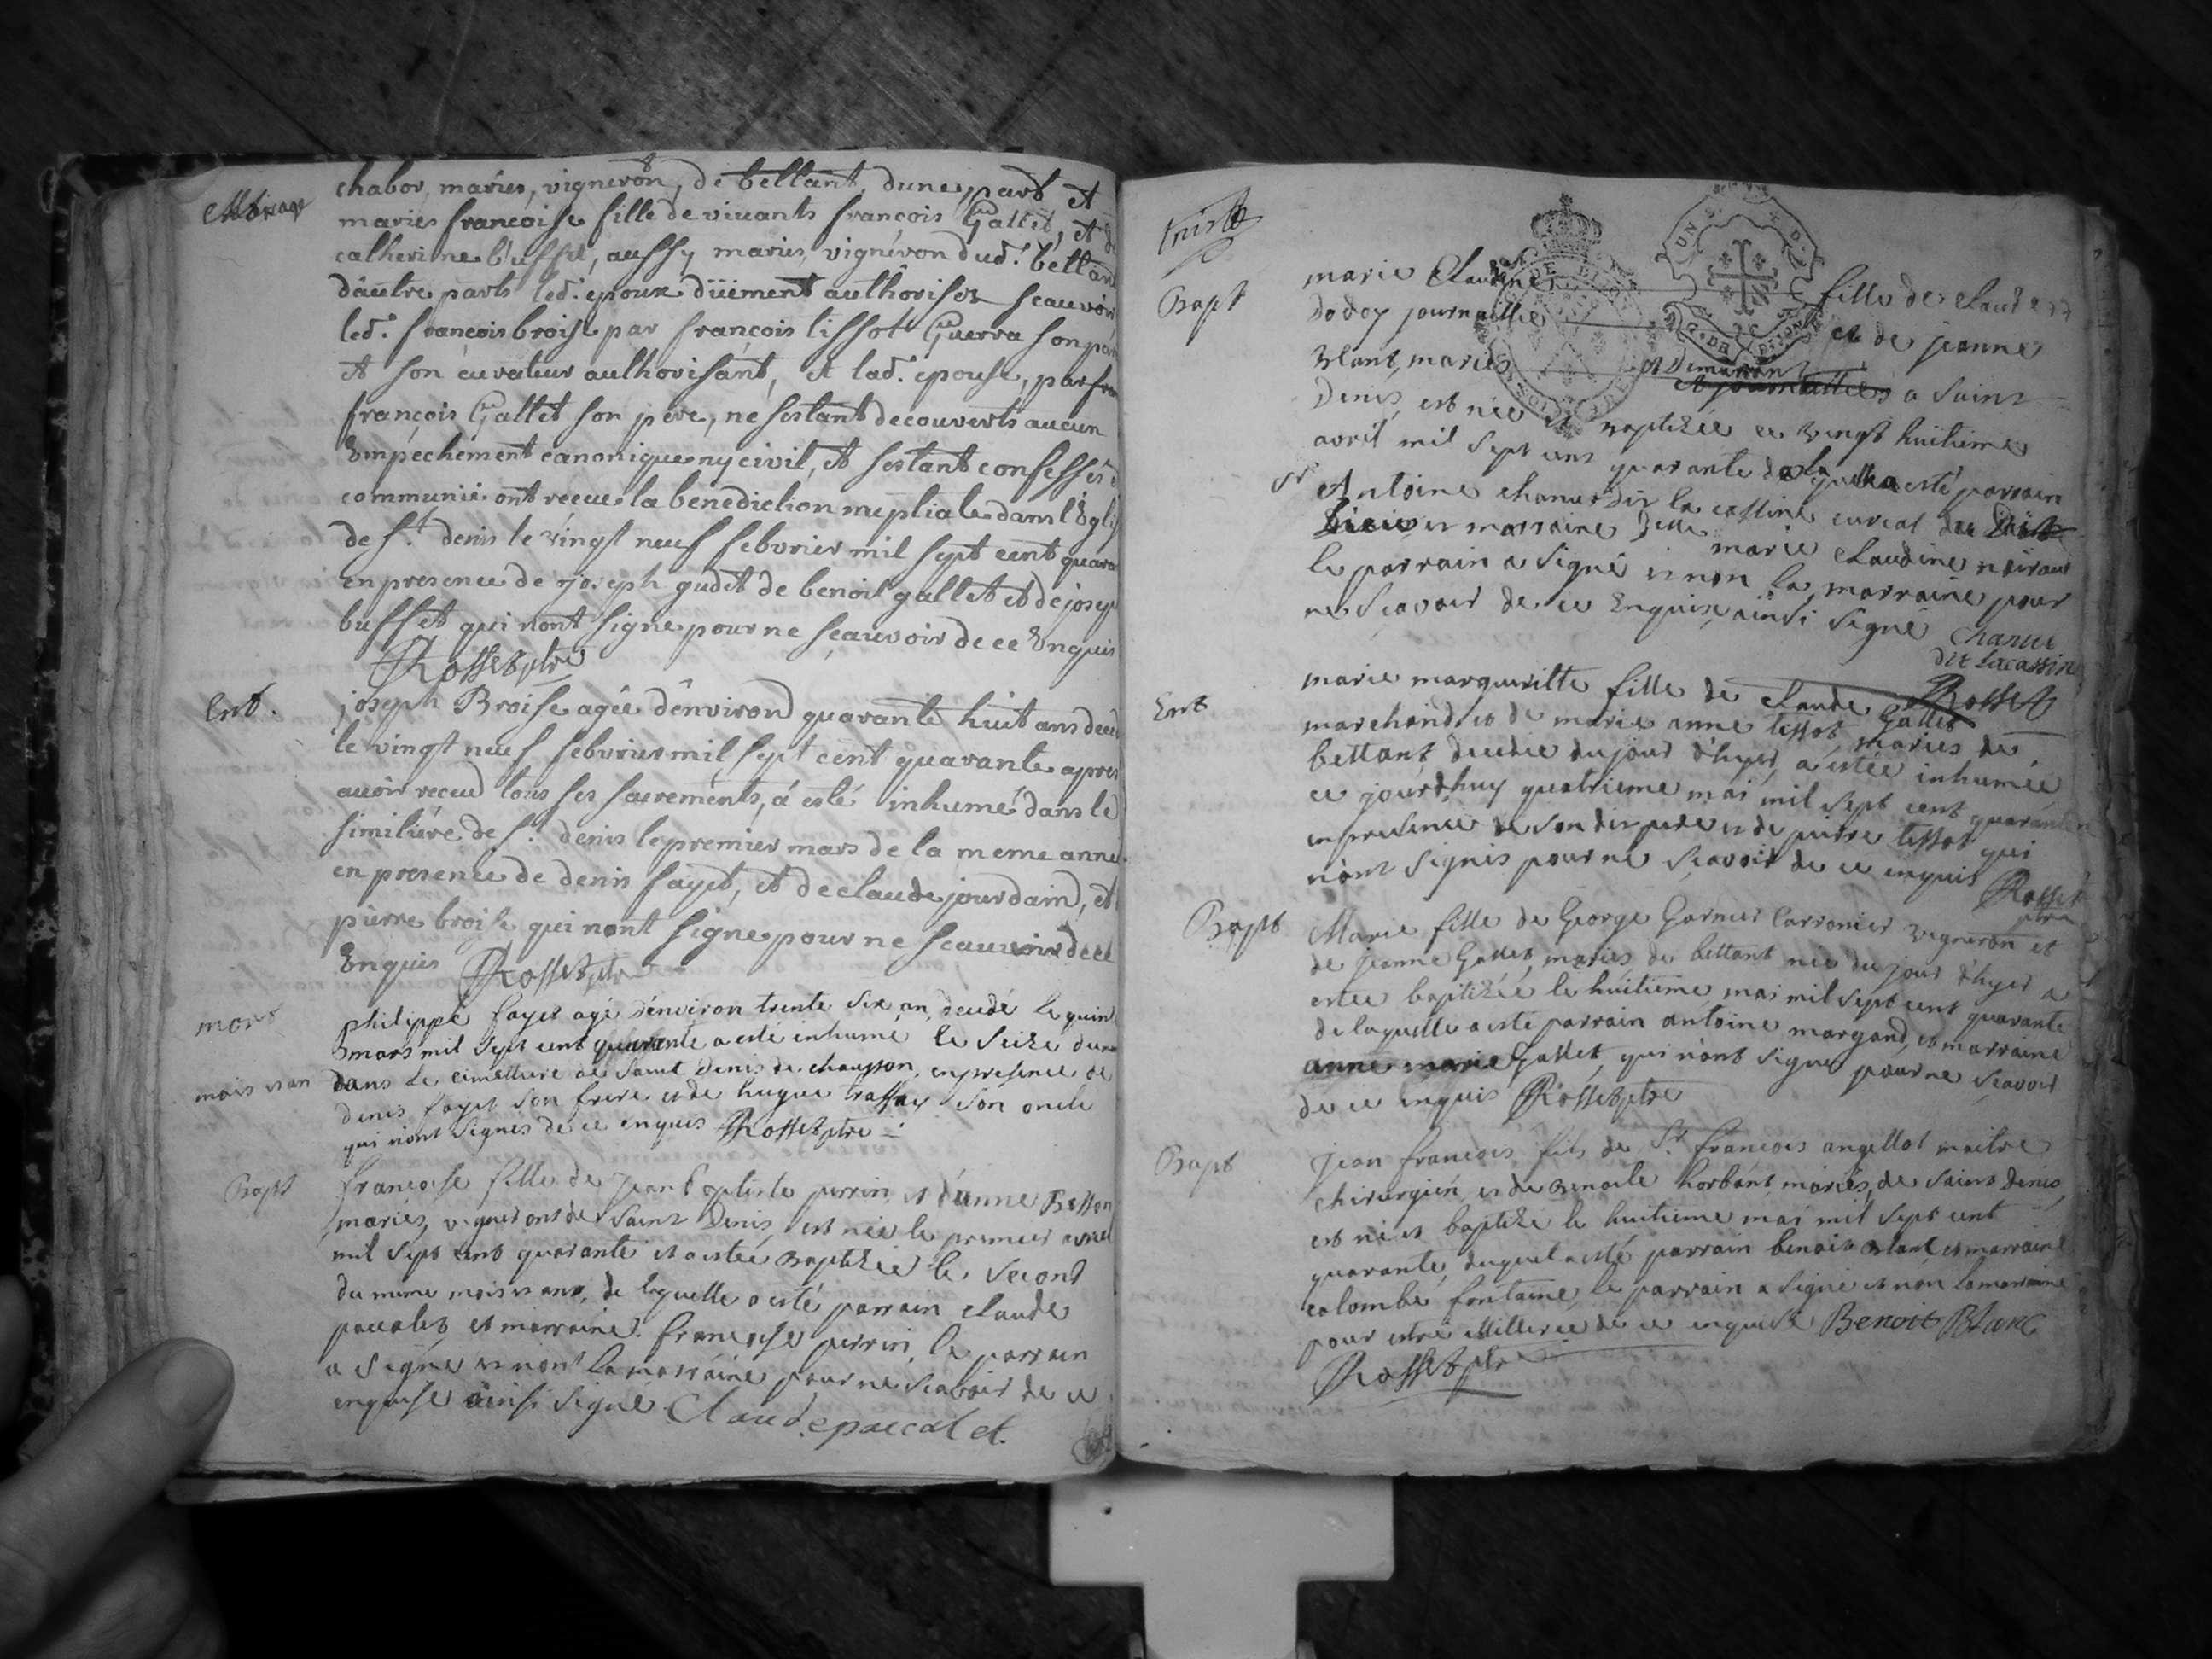 Mariage
chabov, mariés, vigneron, de bettant, dune part et
mariés francoise fille de vivants francois Gallet, et
catherine buffet, aussy mariés, vignéron dud. bettan
dâutre parts led. epoux düement authorisés scauvoir
led. francois broise par francois tissot Guerra son
et son curateur authorisant, et lad. épouse, par
francois Gallet son père, ne sestant decouverts aucun
Empechement canonique ny civil, et sestant confessés
communié ont receue la benediction nuptiale dans l'Egli
de st. denis le vingt neuf febvrier mil sept cent quara
en presence de joseph gudet de benoit gallet et de josep
buffet qui nont signe pour ne sçauvoir de ce Enquis
Rosset ptre
Ent.
joseph Broise agée d'environd quarante huit ans deced
le vingt neuf febvrier mil sept cent quarante apres
avoir receud tous ses sacrements, á esté inhumé dans le
similiére de st. denis le premier mars de la meme anne
en presence de denis fayet, et de claude jourdain, et
pierre broise qui nont signe pour ne scauvoir de ce
Enquis Rosset ptre
mort
philippe fayet agé d'environ trente six an, decedé le quin
mars mil sept cent quarante a esté inhume le seize du
mois et an
dans le cimettiere de saint Denis de chausson, en presence de
denis fayet son frere et de hugue traffay son oncle
qui n'ont signés de ce enquis Rosset ptre
Bapt
francoise fille de jean baptiste perrin et d'anne Besson
mariés, vignerons de Saint Denis, est née le premier avril
mil sept cent quarante et a estée Baptizée le second
du meme mois et ans, de laquelle a esté parrain claude
paccalet et marraine francoise perrin, le parrain
a signé et non la marraine pour ne scavoir de ce
enquise ainsi signé Claude paccalet.
Bapt
marie Claudine fille de claude
Dodoy journallie et de jeanne
Blanc, mariés et Demeurant
a Saint
Denis, est née et Baptizée ce vingt huitieme
avril mil sept cent quarante de laquelle a esté parrain
sr Antoine chanut Dit la cassine
et marraine Delle marie claudine
le parrain a signé et non la marraine pour
ne scavoir de ce Enquise, ainsi signé Chanut
dit Lacassine
Rosset
Ent
marie margueritte fille de claude Gallet
marchand et de marie anne tissot mariés de
bettant decedée du jour d'hyer, a estée inhumée
ce jourdhuy quatrieme mai mil sept cent quarante
en presence de son dit pere et de pierre tissot qui
n'ont signés pour ne scavoir de ce enquis Rosset
ptre
Bapt
Marie fille de George Garnier Carronier vigneron et
de Jeanne Gallet, mariés de bettant née du jour d'hyer a
estée baptizée le huitieme mai mil sept cent quarante
de laquelle a esté parrain antoine margand, et marraine
anne marie Gallet, qui n'ont signé pour ne scavoir
de ce enquis Rosset ptre
Bapt
Jean francois fils de Sr. francois angellot maitre
chirurgien et de Benoite horbant, mariés, de Saint Denis,
est né et baptizé le huitieme mai mil sept cent
quarante, duquel a esté parrain benoit Blanc et marraine
colombe fontaine, le parrain a signé et non la marraine
pour estre illiterée de ce enquise Benoit Blanc
Rosset ptre